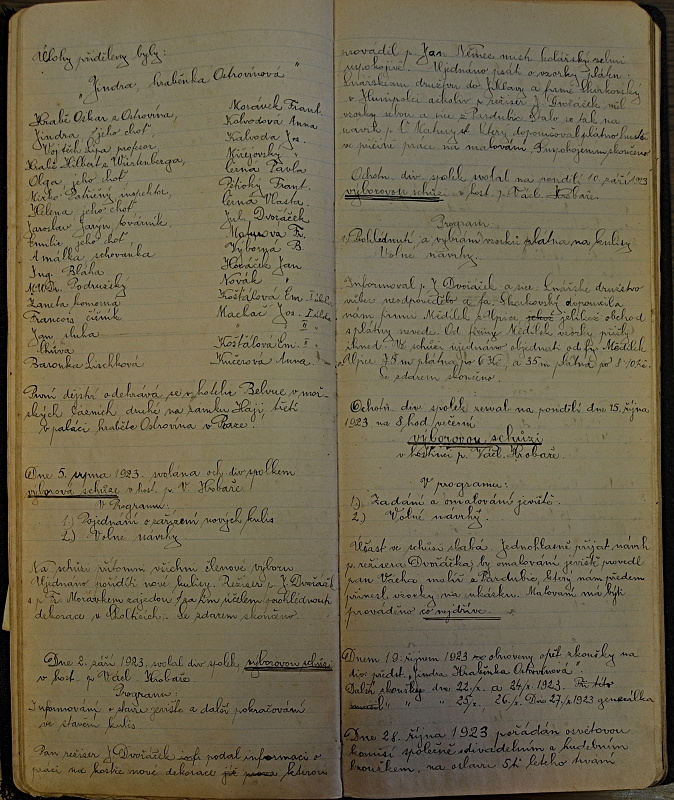 Úlohy přiděleny byly:
„Jindra, hraběnka Ostrovínová“
Hrabě Oskar z Ostrovína, Morávek Frant.
Jindra jeho choť Kalvodová Anna
Vojtěch Lípa profesor Kalvoda Jos.
Hrabě Hilbert z Würtenberga, Krejovský
Olga jeho choť Černá Pavla
Mirko Patričný inspektor, Frant.
Helena jeho choť Černá Vlasta
Jaroslav Jaryn továrník, Jul. Dvořáček
Emilie jeho choť F.
Amálka schovanka Výborná B.
Ing. Bláha Horáček Jan
MUDr. Podruský Novák
Žaneta komorná Košťálová Em.
Francois číšník Machač Jos.
Jan sluha " "
Košťálová Em. "
Baronka Lischková Kučerová Anna
První dějství odehrává se v hotelu Belvue v moř-
ských lázních druhé na zámku Háji, třetí
v paláci hraběte Ostrovína v Praze.
Dne 5. srpna 1923. svolána och. div. spolkem
výborová schůze v host. p. V. Hrobaře
Programu:
1.) Pojednání o zařízení nových kulis
2.) Volné návrhy
Na schůzi přítomni všichni členové výboru
Ujednáno poříditi nové kulisy. Režisér p. J. Dvořáček
s p. Fr. Morávkem zajedou za tím účelem prohlédnouti
dekorace v Se zdarem skončeno.
Dne 2. září 1923, svolal div. spolek, výborovou schůzi
v host. p. Václ. Hrobaře
Programu:
Informování o stavu jeviště a další pokračování
ve stavění kulis
Pan režisér J. Dvořáček podal informaci o
práci na kostře nové dekorace kterou
prováděl p. Jan Němec mistr kolářský velmi
uspokojivě. Ujednáno psáti o vzorky pláten
družstvu do Jihlavy a firmě Skorkovský
v Humpolci ačkoliv p. režisér J. Dvořáček měl
vzorky sebou a sice z Pardubic. Stalo se tak na
návrh p. který doporučoval plátno husté
ve přízni práce na malování. skončeno
Ochotn. div. spolek svolal na pondělí 10. září 1923
výborovou schůzi v host. p. Václ. Hrobaře.
Program:
Prohlédnutí a vybrání vzorků plátna na kulisy
Volné návrhy.
Informoval p. J. Dvořáček a sice družstvo
vůbec neodpovědělo a fa. Skorkovský doporučila
nám firmu Mědílek z Úpice jelikož obchod
s plátny nevede. Od firmy Mědílek vzorky přišly
ihned. Ve schůzi ujednáno objednati od fy. Mědílek
Úpice 75 m plátna po 6 Kč, a 35 m plátna po
Se zdarem skončeno.
Ochotn. div. spolek svolal na pondělí dne 15. října
1923 na 8 hod večerní
výborovou schůzi
v hostinci p. Václ. Hrobaře.
V programu:
1.) Zadání a omalování jeviště.
2.) Volné návrhy.
Účast ve schůzi slabá. Jednohlasně přijat návrh
p. režiséra Dvořáčka, by omalování jeviště provedl
pan Vácha malíř z Pardubic, který nám předem
přinesl vzorky na ukázku. Malování má býti
prováděno co nejdříve.
Dnem 19. říjnem 1923 obnoveny opět zkoušky na
div. předst. „Jindra Hraběnka Ostrovínová“
Další zkoušky dne 22./X. a 24./X. 1923.
" " 25./X. 26./X. Dne 27./X. 1923 generálka
Dne 28. října 1923 pořádán osvětovou
komisí společně s divadelním a hudebním
kroužkem, na oslavu 5ti letého trvání